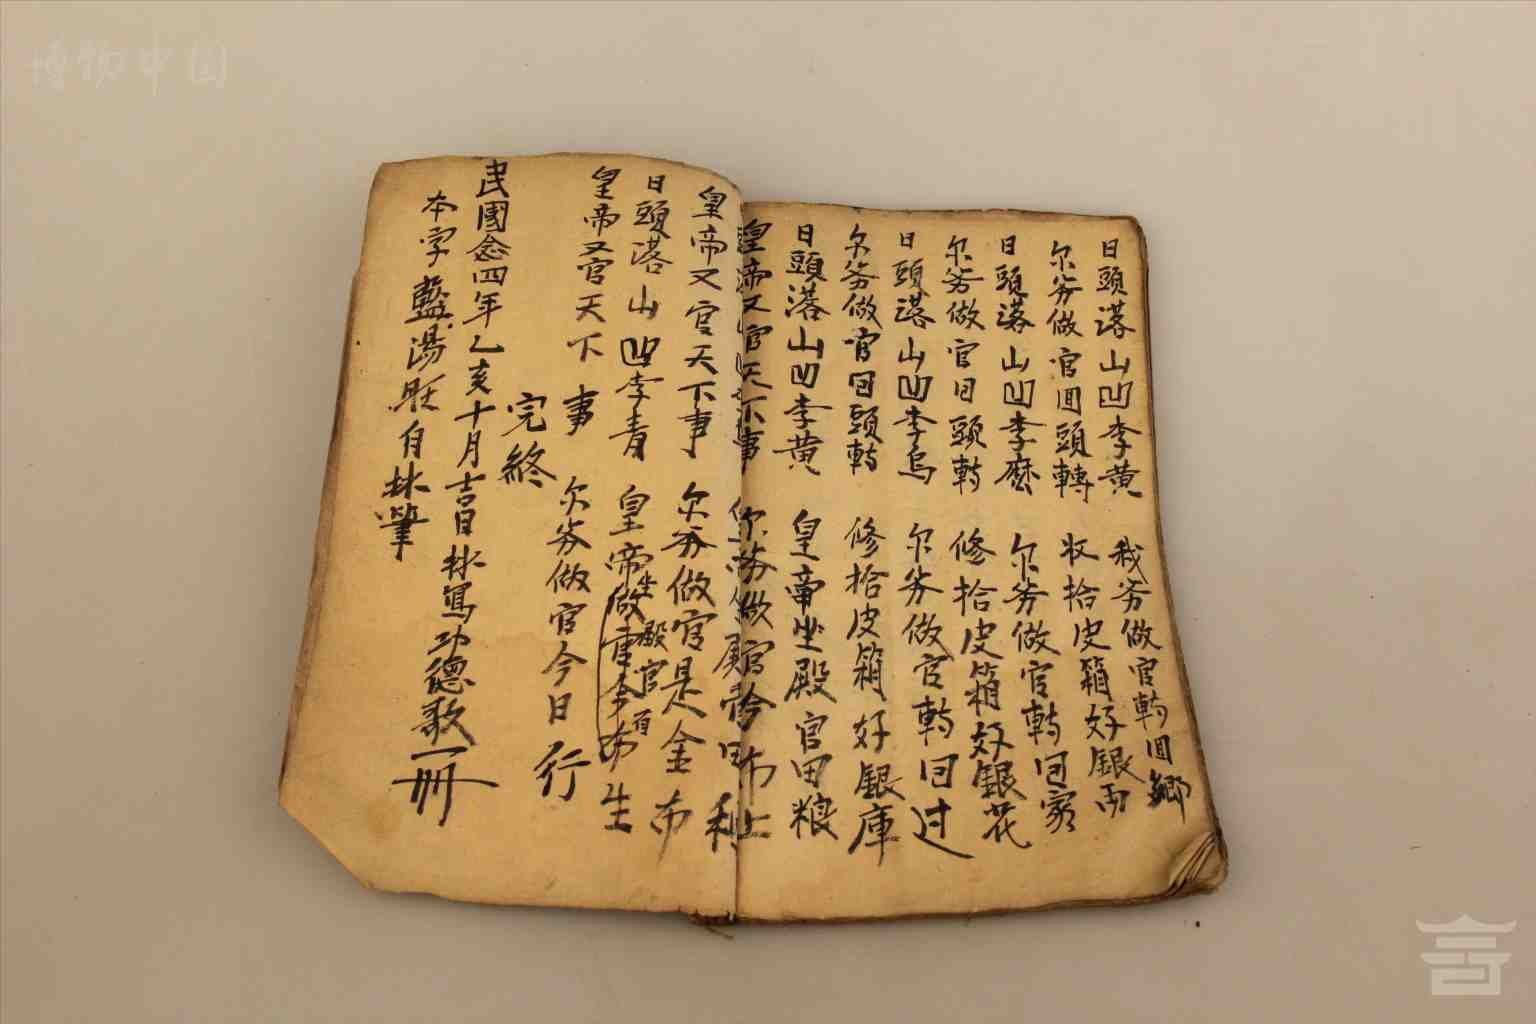 日頭落山凹李黄 我劳做官轉回鄉
尔劳做官回頭轉 收拾皮箱好銀両
日頭落山凹李麽 尔劳做官轉回家
尔劳做官回頭轉 修拾皮箱好銀花
日頭落山凹李烏 尔劳做官轉回过
尔劳做官回頭轉 修拾皮箱好銀庫
日頭落山凹李黄 皇帝坐殿官田粮
皇帝又官天下事
皇帝又官天下事 尔劳做官是金布
日頭落山凹李青 皇帝做 坐殿官 生
皇帝又官天下事 尔劳做官今日行
完終
民國念四年乙亥十月吉日抄寫功德歌一冊
本字藍湯旺自抄筆
博物中国